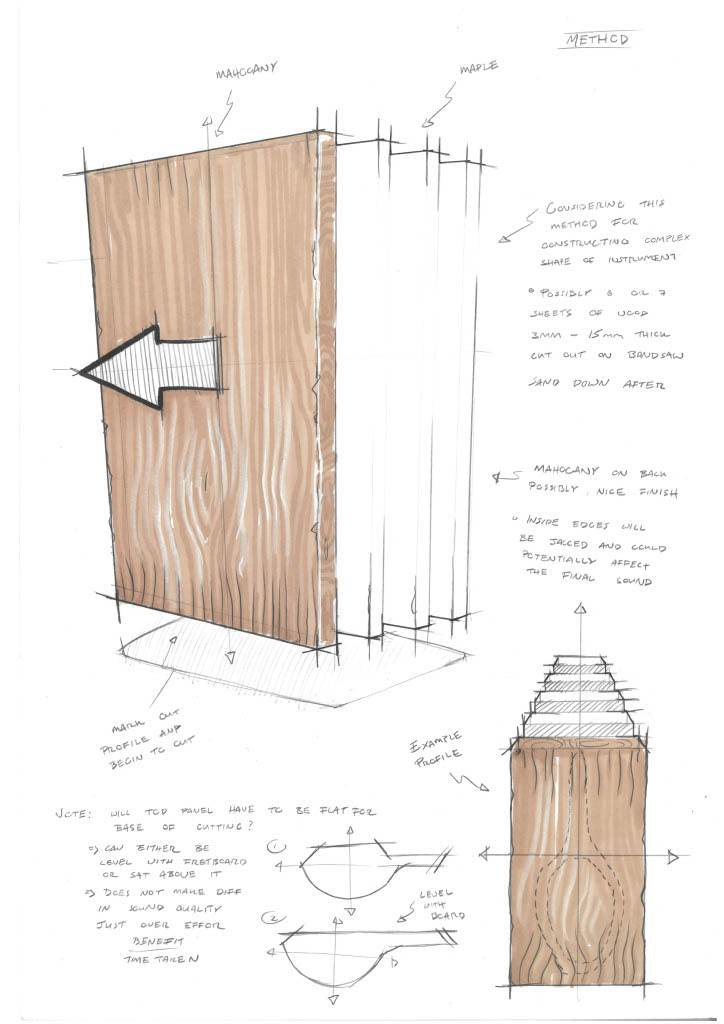 METHOD
MAHOGANY
MAPLE
CONSIDERING THIS
METHOD FOR
CONSTRUCTING COMPLEX
SHAPE OF INSTRUMENT
POSSIBLY 6 OR 7
SHEETS OF WOOD
3MM - 15mm THICK
CUT OUT ON BANDSAW
SAND DOWN AFTER
MAHOGANY ON BACK
POSSIBLY, NICE FINISH
INSIDE EDGES WILL
BE JAGGED AND COULD
POTENTIALLY AFFECT
THE FINAL SOUND
MARK CUT
PROFILE AND
BEGIN TO CUT
EXAMPLE
PROFILE
NOTE: WILL TOP PANEL HAVE TO BE FLAT FOR
EASE OF CUTTING?
=> CAN EITHER BE
LEVEL WITH FRETBOARD
OR SAT ABOVE IT
=> DOES NOT MAKE DIFF
IN SOUND QUALITY
JUST OVER EFFOR
BENEFIT
TIME TAKEN
1
2
LEVEL
WITH
BOARD